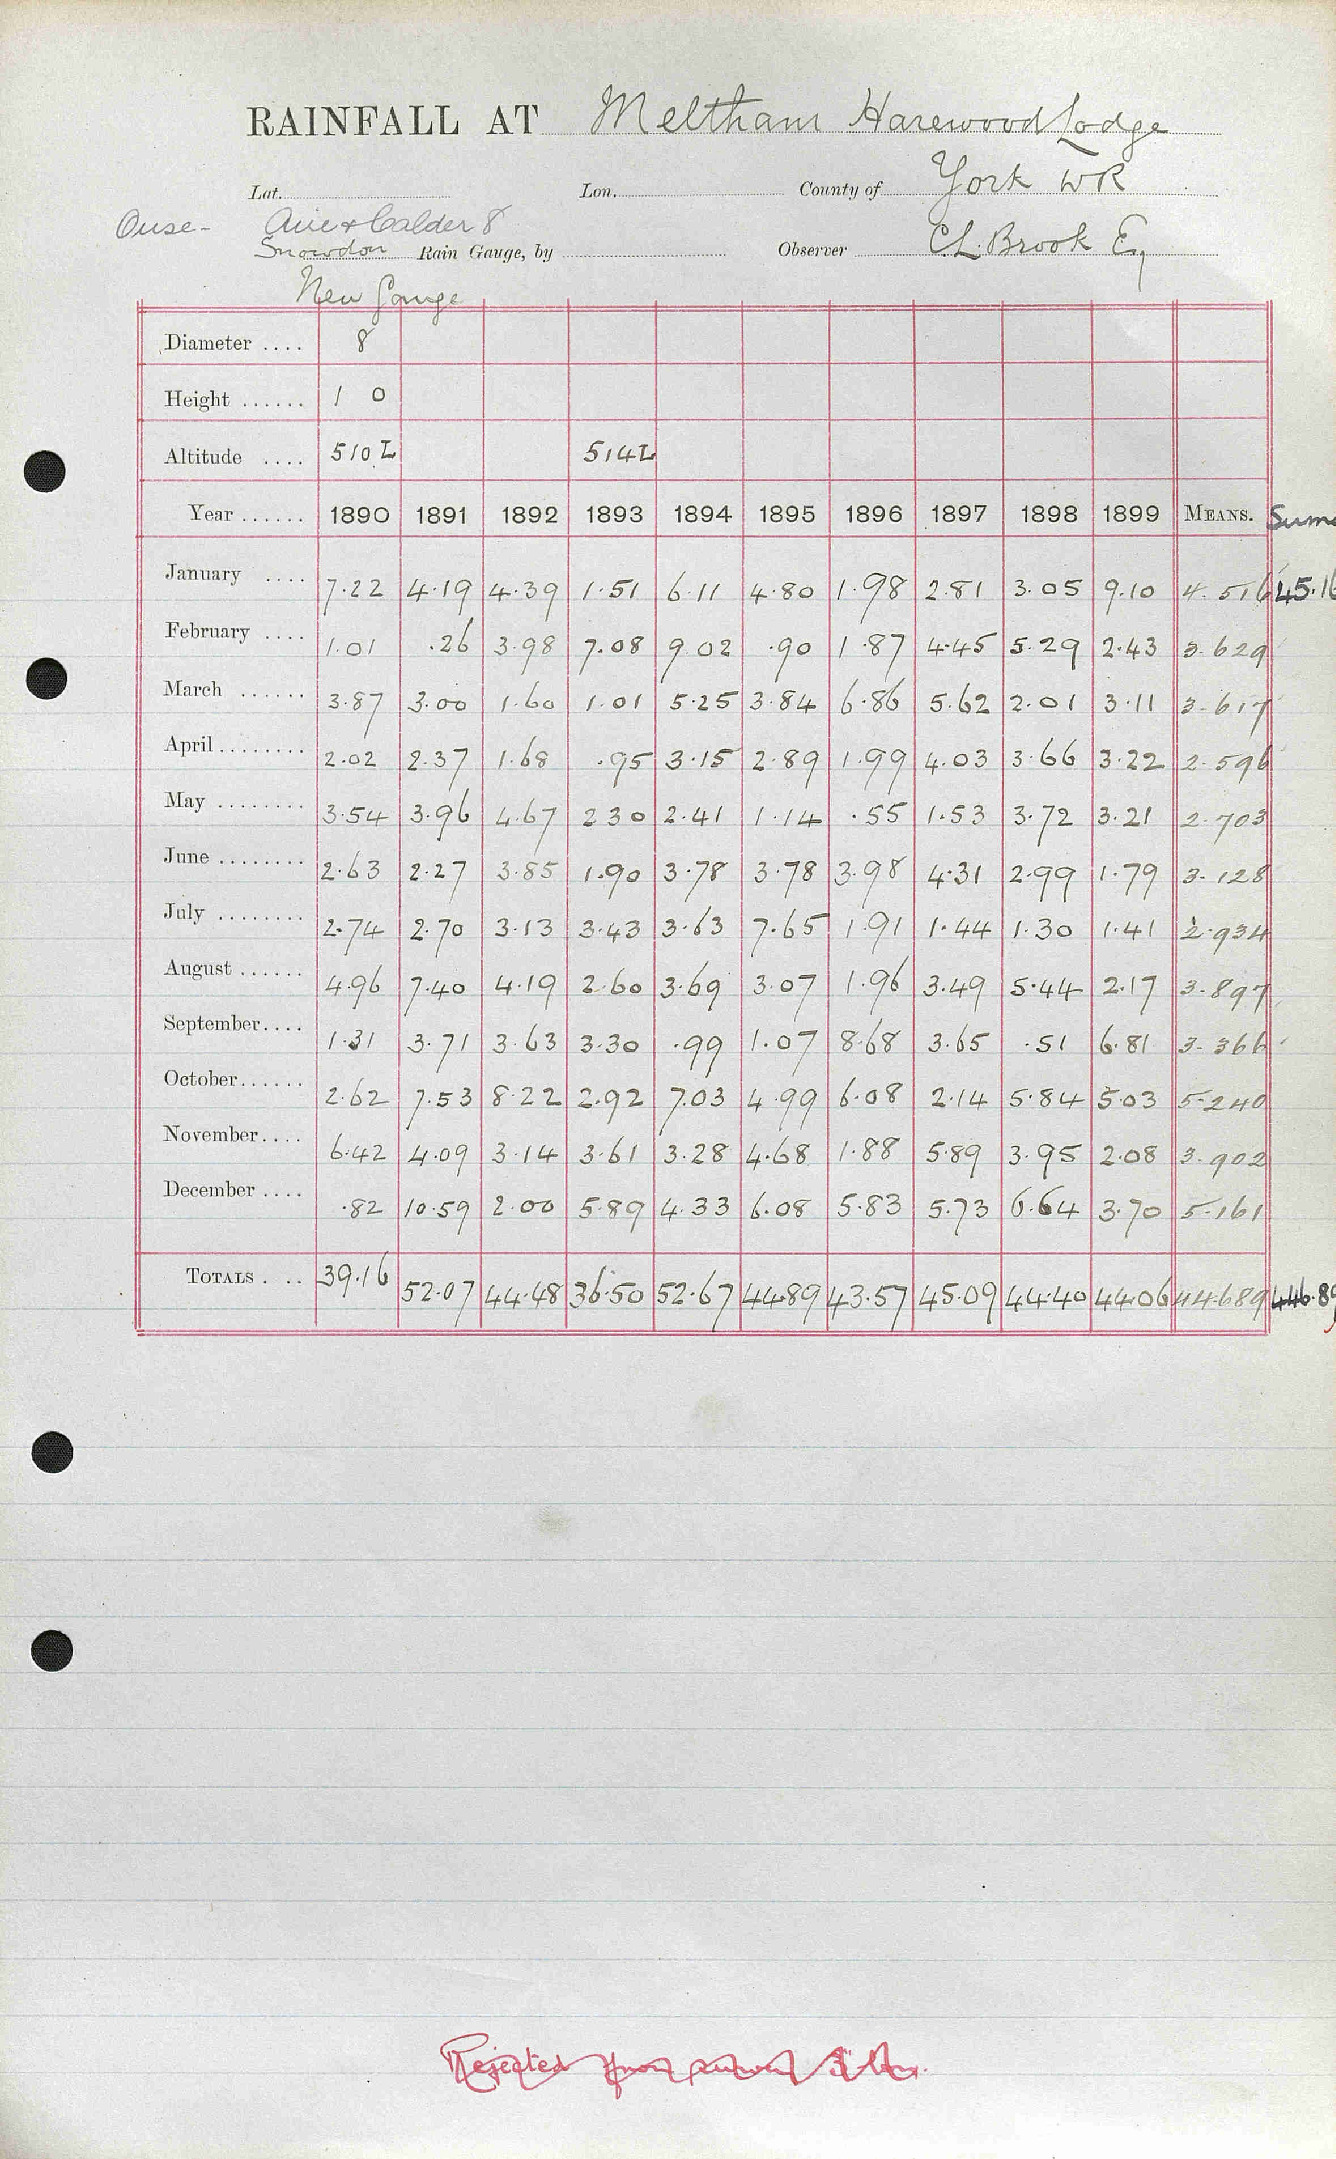 RAINFALL AT Meltham Harewood Lodge
Lat. Lon. County of York WR
Ouse - Aire & Calder 8
Snowdon Rain Gauge, by Observer CL. Brook Eq
New Gauge
Diameter .... 8
Height ...... 1 0
Altitude .... 510 L 514L
Year ...... 1890 1891 1892 1893 1894 1895 1896 1897 1898 1899 MEANS. Sums
January .... 7.22 4.19 4.39 1.51 6.11 4.80 1.98 2.81 3.05 9.10 4.516 45.16
February .... 1.01 .26 3.98 7.08 9.02 .90 1.87 4.45 5.29 2.43 3.629
March ...... 3.87 3.00 1.60 1.01 5.25 3.84 6.86 5.62 2.01 3.11 3.617
April ........ 2.02 2.37 1.68 .95 3.15 2.89 1.99 4.03 3.66 3.22 2.596
May ........ 3.54 3.96 4.67 2 30 2.41 1.14 .55 1.53 3.72 3.21 2.703
June ........ 2.63 2.27 3.85 1.90 3.78 3.78 3.98 4.31 2.99 1.79 3.128
July ........ 2.74 2.70 3.13 3.43 3.63 7.65 1.91 1.44 1.30 1.41 2.934
August ...... 4.96 7.40 4.19 2.60 3.69 3.07 1.96 3.49 5.44 2.17 3.897
September .... 1.31 3.71 3.63 3.30 .99 1.07 8.68 3.65 .51 6.81 3.366
October ...... 2.62 7.53 8.22 2.92 7.03 4.99 6.08 2.14 5.84 5.03 5.240
November .... 6.42 4.09 3.14 3.61 3.28 4.68 1.88 5.89 3.95 2.08 3.902
December .... .82 10.59 2.00 5.89 4.33 6.08 5.83 5.73 6.64 3.70 5.161
TOTALS . .. 39.16 52.07 44.48 36.50 52.67 44.89 43.57 45.09 44.40 44.06 44.689 446.89
Rejected from